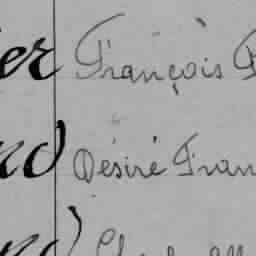 er François F
nd Désiré Fran
nd